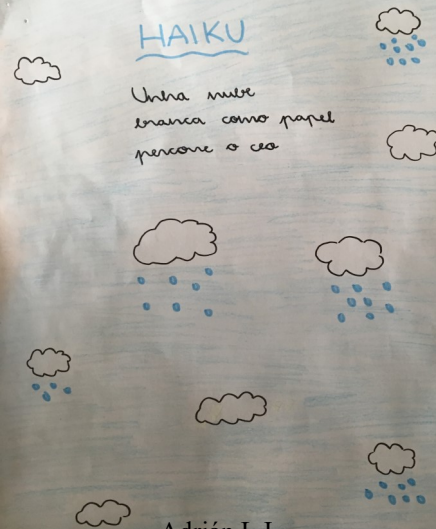 HAIKU
Unha nube
branca como papel
percorre o ceo
Adrián L. L.